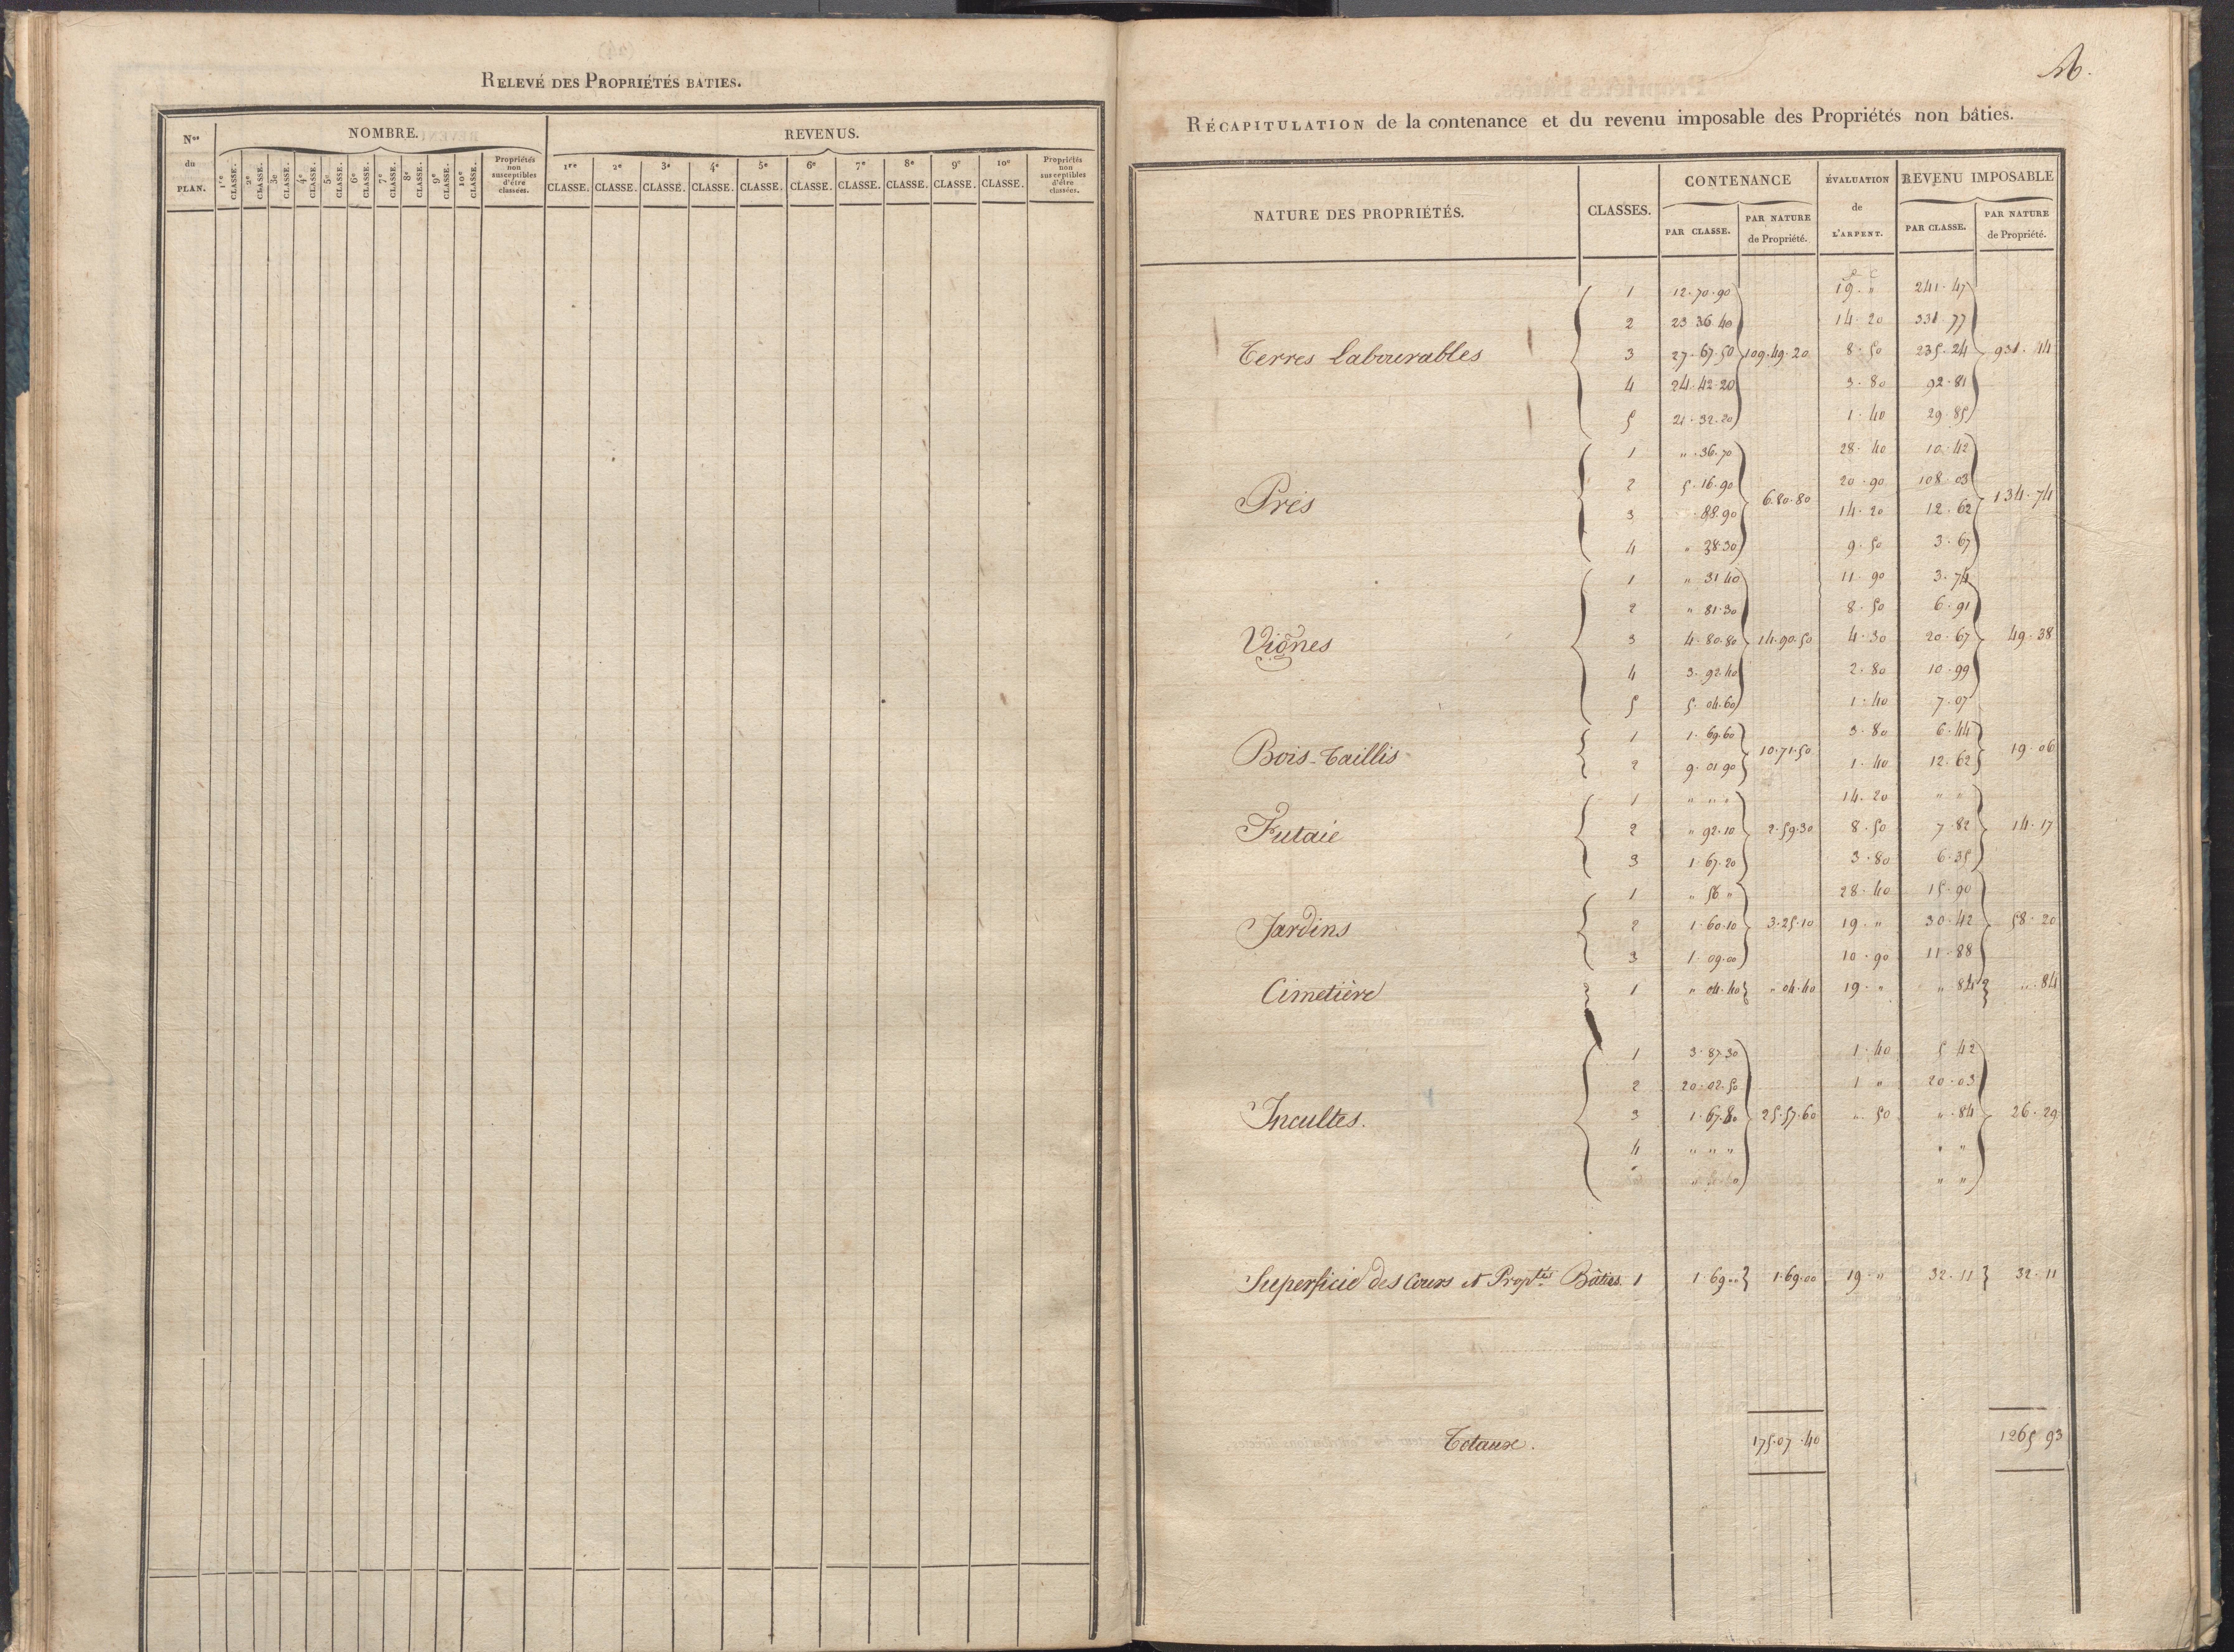 RELEVÉ DES PROPRIÉTÉS BATIES.
Nos du PLAN.
NOMBRE.
1re CLASSE. 2e CLASSE. 3e CLASSE. 4e CLASSE. 5e CLASSE. 6e CLASSE. 7e CLASSE. 8e CLASSE. 9e CLASSE. 10e CLASSE. Propriétés non susceptibles d'être classées.
REVENUS.
1re CLASSE. 2e CLASSE. 3e CLASSE. 4e CLASSE. 5e CLASSE. 6e CLASSE. 7e CLASSE. 8e CLASSE. 9e CLASSE. 10e CLASSE. Propriétés non susceptibles d'être classées.
RÉCAPITULATION de la contenance et du revenu imposable des Propriétés non bâties.
NATURE DES PROPRIÉTÉS. CLASSES. CONTENANCE PAR CLASSE. PAR NATURE de Propriété. ÉVALUATION de L'ARPENT. REVENU IMPOSABLE PAR CLASSE. PAR NATURE de Propriété.
f c
1 12.70.90 19. " 241.47
2 23 36 40 14.20 331.77
Terres Labourables 3 27.67.50 109.49.20 8.50 235.24 931.44
4 24.42.20 3.80 92.81
5 21.32.20 1.40 29.85
1 " .36.70 28.40 10.42
2 5.16.90 20.90 108.03
Prés 6.80.80 134.74
3 . 88.90 14.20 12.62
4 " 38.30 9.50 3.67
1 " 31 40 11.90 3.74
2 " 81.30 8.50 6.91
Vignes 3 4.80.80 14.90.50 4.30 20.67 49.38
4 3.92.40 2.80 10.99
5 5.04.60 1.40 7.07
1 1.69.60 3.80 6.44
Bois-Taillis 10.71.50 19.06
2 9.01 90 1.40 12.62
1 " " " 14.20 " "
Futaie 2 " 92.10 2.59.30 8.50 7.82 14.17
3 1.67.20 3.80 6.35
1 " 56 " 28.40 15.90
Jardins 2 1.60.10 3.25.10 19. " 30.42 58.20
3 1.09.00 10.90 11.88
Cimetière 1 " 04.40 " 04.40 19. " " 84 " .84
1 3.87.30 1.40 5.42
2 20.02.50 1 " 20.03
Incultes. 3 1.67.80 25.57.60 " .50 " .84 26.29
4 " " " " "
" "
Superficie des Cours et Proptés Bâties. 1 1.69 00 1.69.00 19. " 32.11 32.11
Totaux. 175.07.40 1265 93